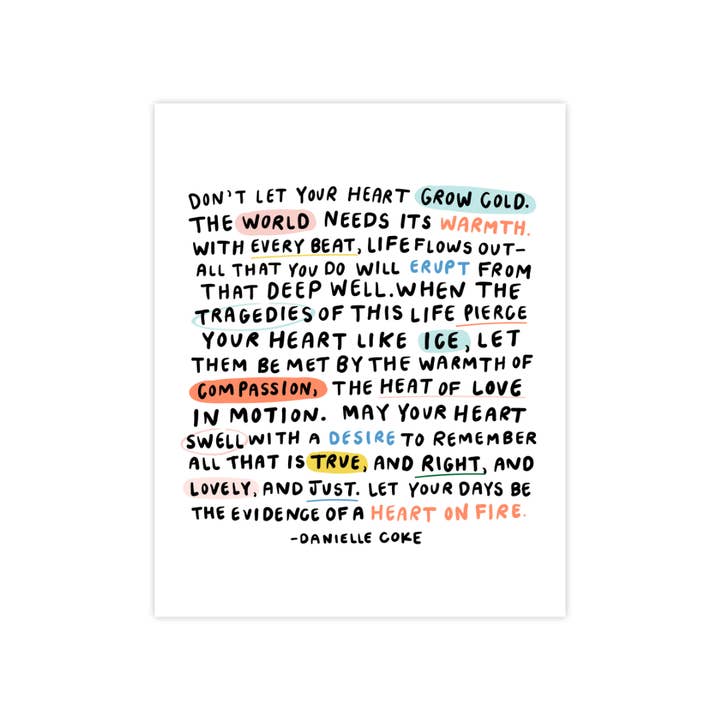 DON'T LET YOUR HEART GROW COLD.
THE WORLD NEEDS ITS WARMTH.
WITH EVERY BEAT, LIFE FLOWS OUT—
ALL THAT YOU DO WILL ERUPT FROM
THAT DEEP WELL. WHEN THE
TRAGEDIES OF THIS LIFE PIERCE
YOUR HEART LIKE ICE, LET
THEM BE MET BY THE WARMTH OF
COMPASSION, THE HEAT OF LOVE
IN MOTION. MAY YOUR HEART
SWELL WITH A DESIRE TO REMEMBER
ALL THAT IS TRUE, AND RIGHT, AND
LOVELY, AND JUST. LET YOUR DAYS BE
THE EVIDENCE OF A HEART ON FIRE.
-DANIELLE COKE